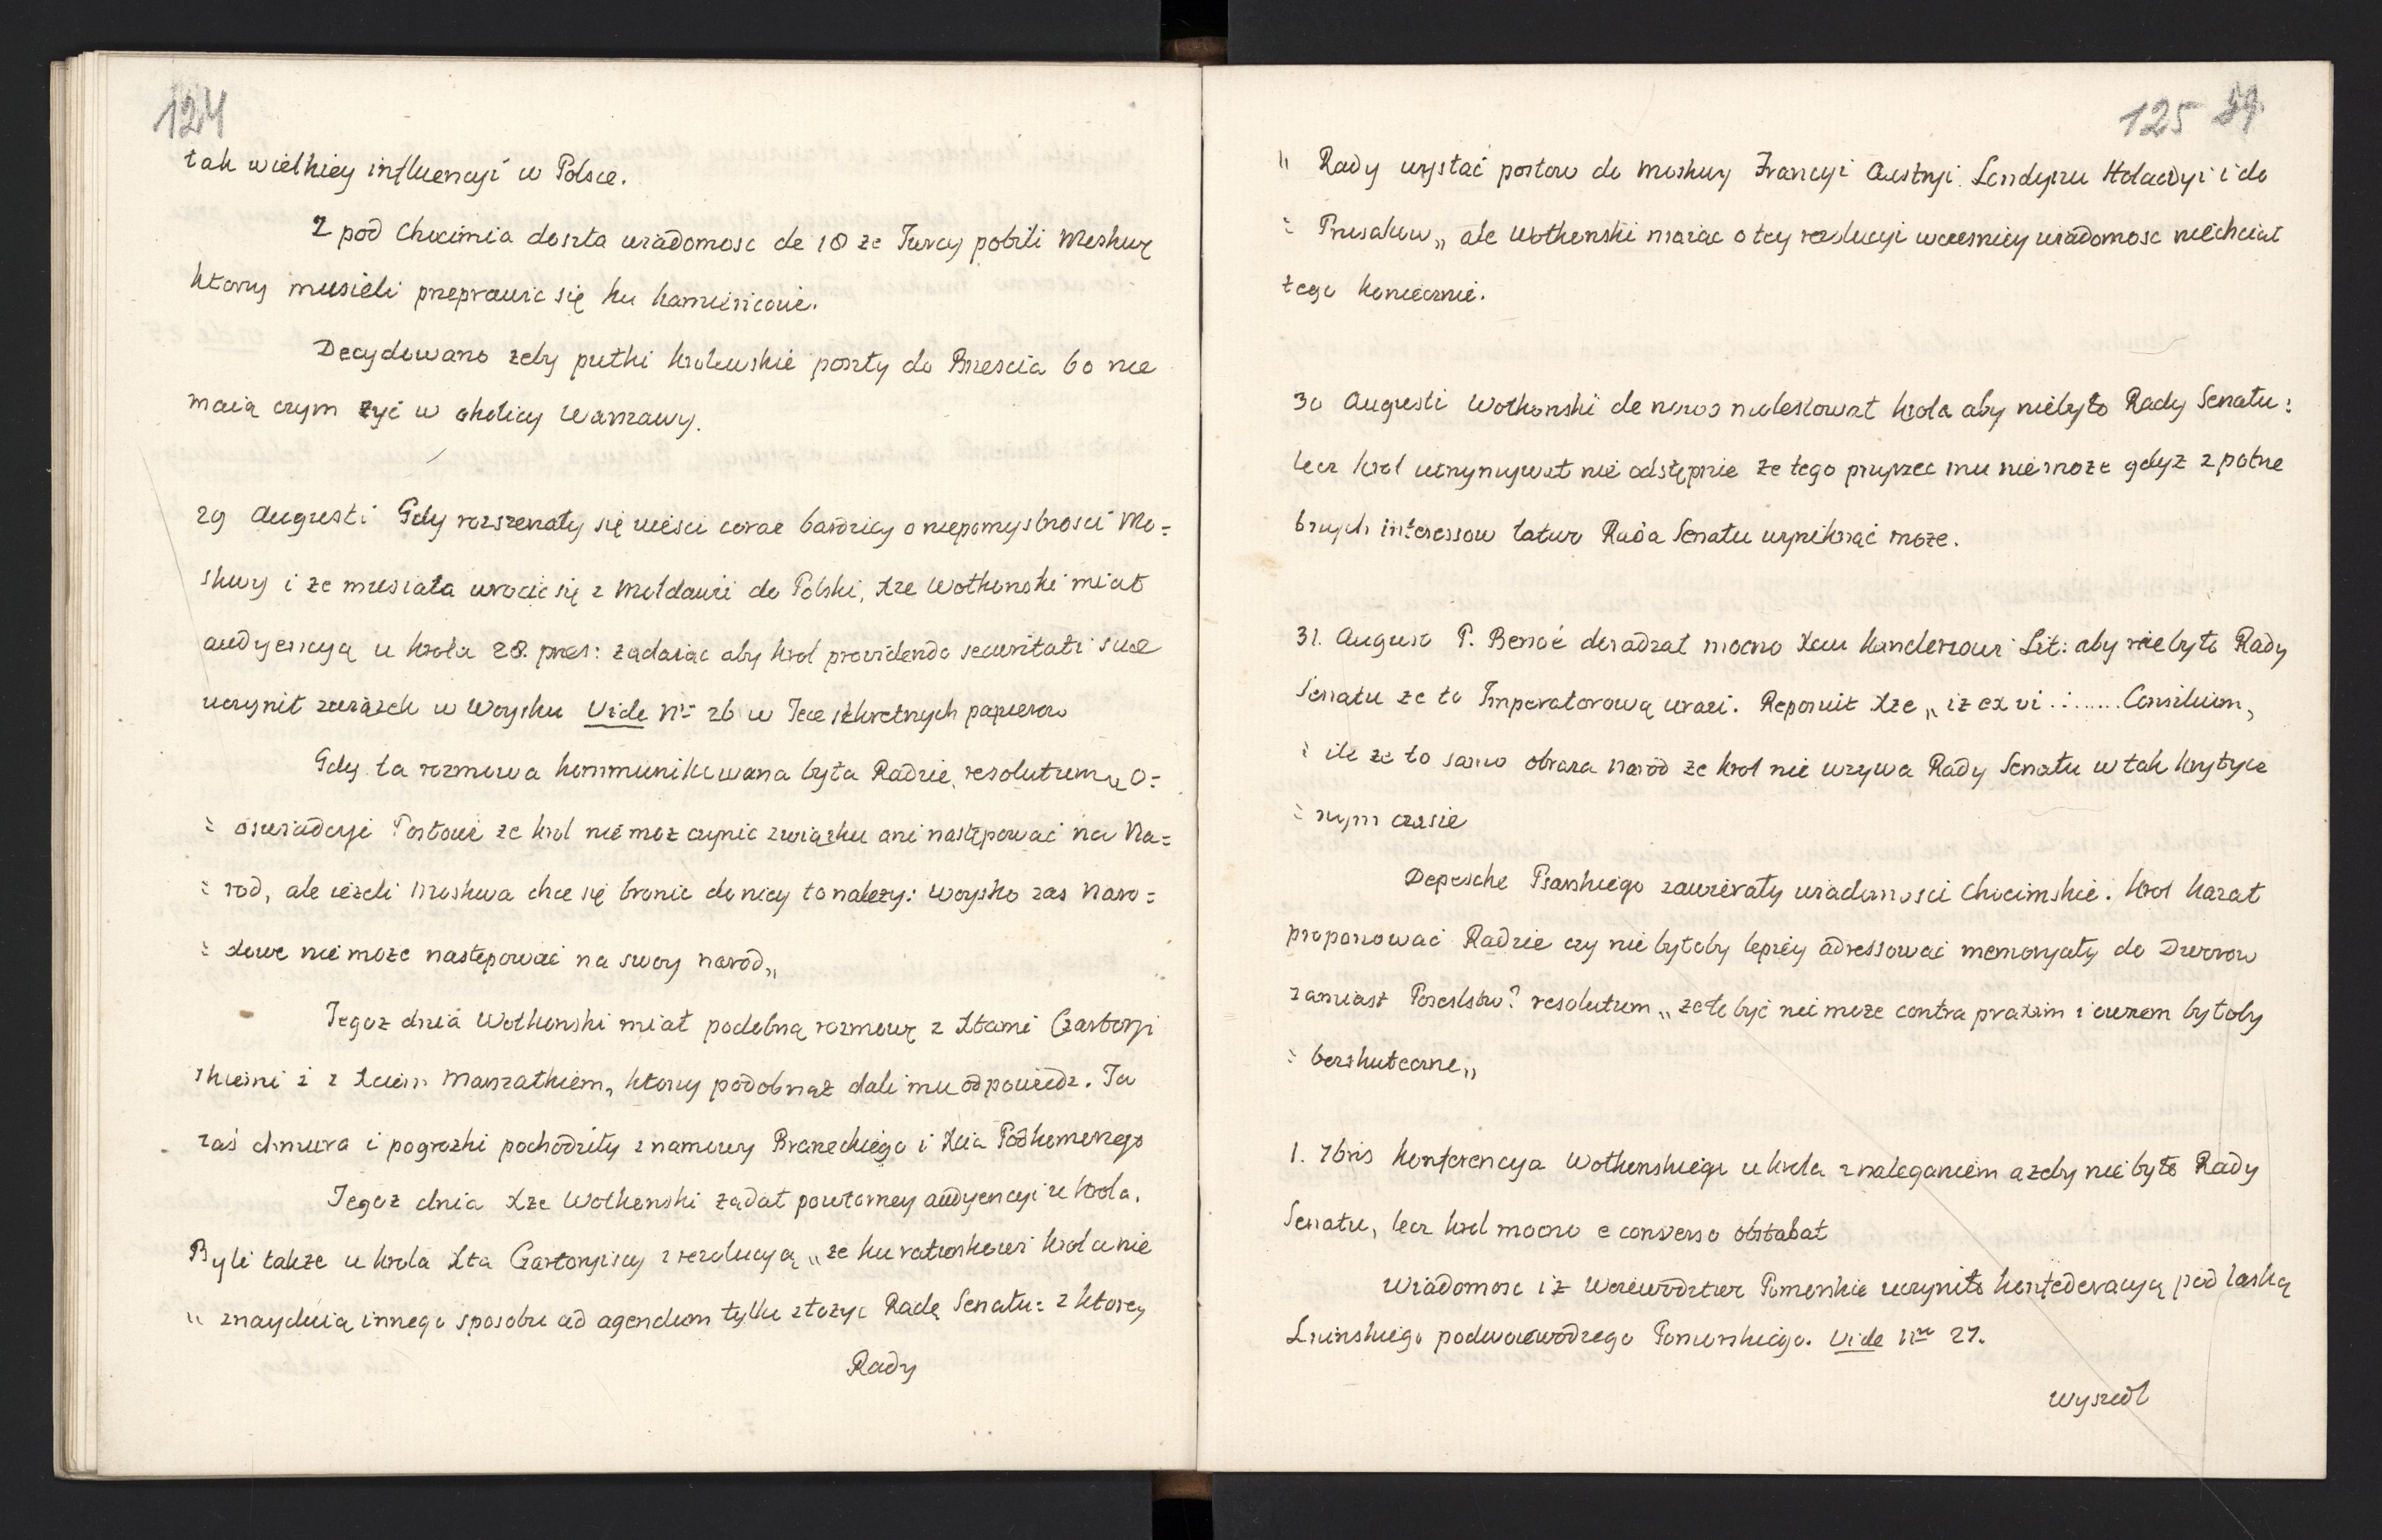 124
tak wielkiey influencyi w Polsce.
Z pod Chocimia doszła wiadomosc de 18 ze Turcy pobili Moskwę
ktory musieli przeprawic się ku kamiencowi.
Decydowano zeby pułki krolewskie poszły do Brzescia bo nie
maią czym zyć w okolicy Warszawy.
29 Augusti Gdy rozszerzały się wieści coraz bardziey o niepomyslnosci Mo=
skwy i ze musiała wrocic się z Mołdawii do Polski, Xze Wołkonski miał
audyencyą u krola 28. pres: ządaiąc aby krol providendo securitati suae
uczynił związek w Woysku Vide Nro 26 w Tece sekretnych papierow
Gdy ta rozmowa kommunikowana była Radzie, resolutum „ O=
= oswiadczyć Posłowi ze krol nie moz czynic związku ani następować na Na=
= rod, ale ieżeli Moskwa chce się bronic do niey to nalezy: woysko zas Naro=
= dowe nie moze następować na swoy narod„
Tegoz dnia Wołkonski miał podobną rozmowę z Xtami Czartoryi
skiemi i z Xciem Marszałkiem, ktory podobnąż dali mu odpowiedz. Ta
zaś chmura i pogrozki pochodziły z namowy Braneckiego i Xcia Podkomorzego
Tegoz dnia Xze Wołkonski ządał powtorney audyencyi u krola.
Byli takze u krola Xta Czartoryiscy z rezolucyą „ze ku ratunkowi krola nie
„ znayduią innego sposobu ad agendum tylko złozyc Radę Senatu: z ktorey
Rady
125 57
„ Rady wysłać posłow do Moskwy Francyi Austryi Londynu Holandyi i do
= Prusakow„ ale Wołkonski maiąc o tey rezolucyi wczesniey wiadomosc niechciał
tego koniecznie.
30 Augusti Wołkonski de novo molestował krola aby niebyło Rady Senatu:
lecz krol utrzymywał nie odstępnie ze tego przyrzec mu niemoze gdyz z potrze
bnych interessow łatwo Rada Senatu wyniknąć moze.
31. August P. Benoé doradzał mocno Xciu kanclerzowi Lit: aby niebyło Rady
Senatu ze to Imperatorową urazi. Reponit Xze „iz ex vi ........ Consilium,
= ile ze to samo obraza narod ze krol nie uzywa Rady Senatu w tak krytycz
= nym czasie
Depesche Psarskiego zawierały wiadomosci Chocimskie. Krol kazał
proponować Radzie czy nie byłoby lepiéy adressować memoryały do Dworow
zamiast Poselstw? resolutum „ze to być nie moze contra praxim i owszem byłoby
= bezskuteczne„
1. 7bris konferencya Wołkonskiego u krola z naleganiem azeby nie było Rady
Senatu, lecz krol mocno e converso obstabat
Wiadomosc iż Woiewodztwo Pomorskie uczyniło konfederacyą pod laską
Lninskiego podwoiewodzego Pomorskiego. Vide Nro 27.
Wyszedł